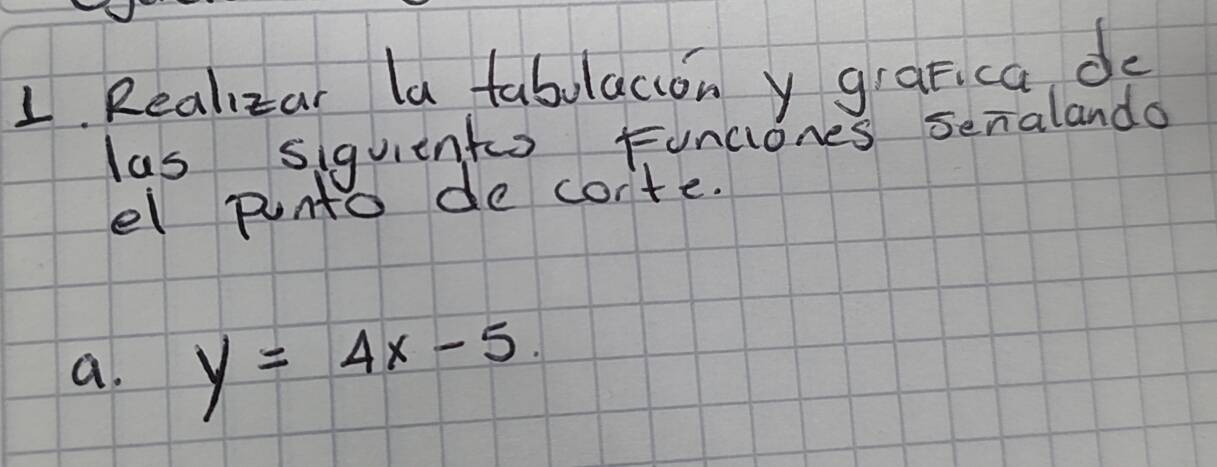 1. Realizar la tabulación y grafica de
las siguientes funciones señalando
el punto de corte.
a. y = 4x - 5.